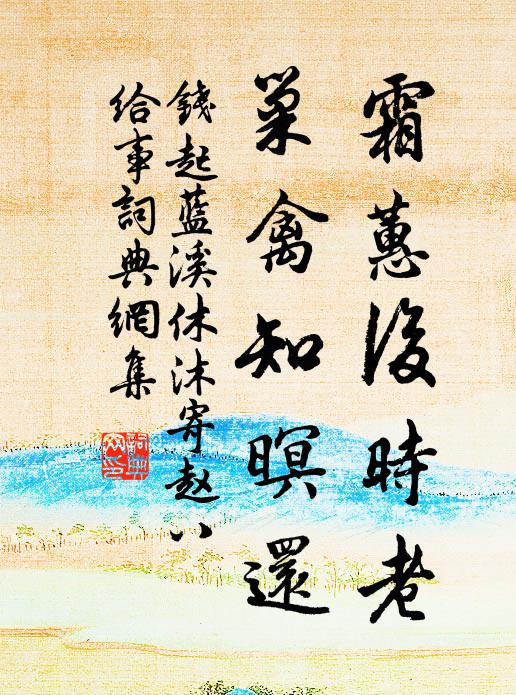 霜蕙後時老
巢禽知暝還
錢起藍溪休沐寄赵八
給事詞典網集